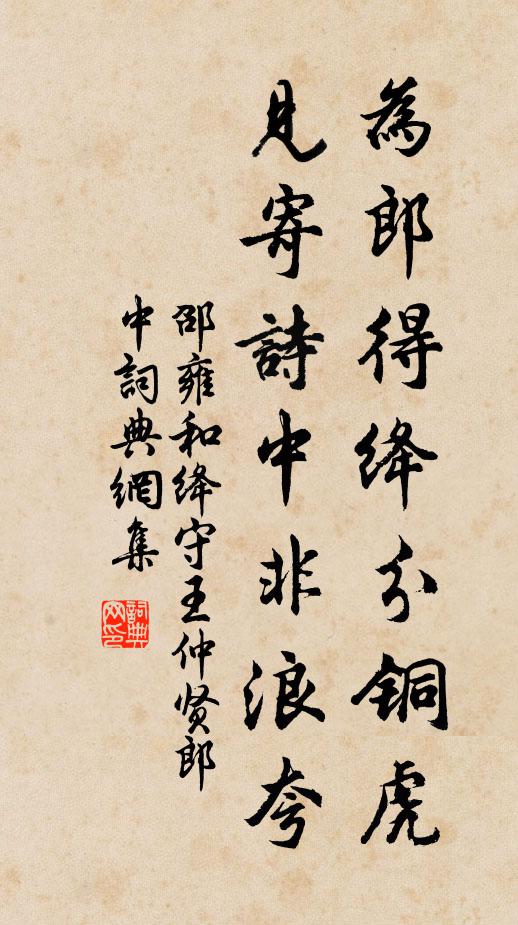 為郎得絳分銅虎
見寄詩中非浪夸
邵雍和絳守王仲贤郎
中詞典網集
詞典网印